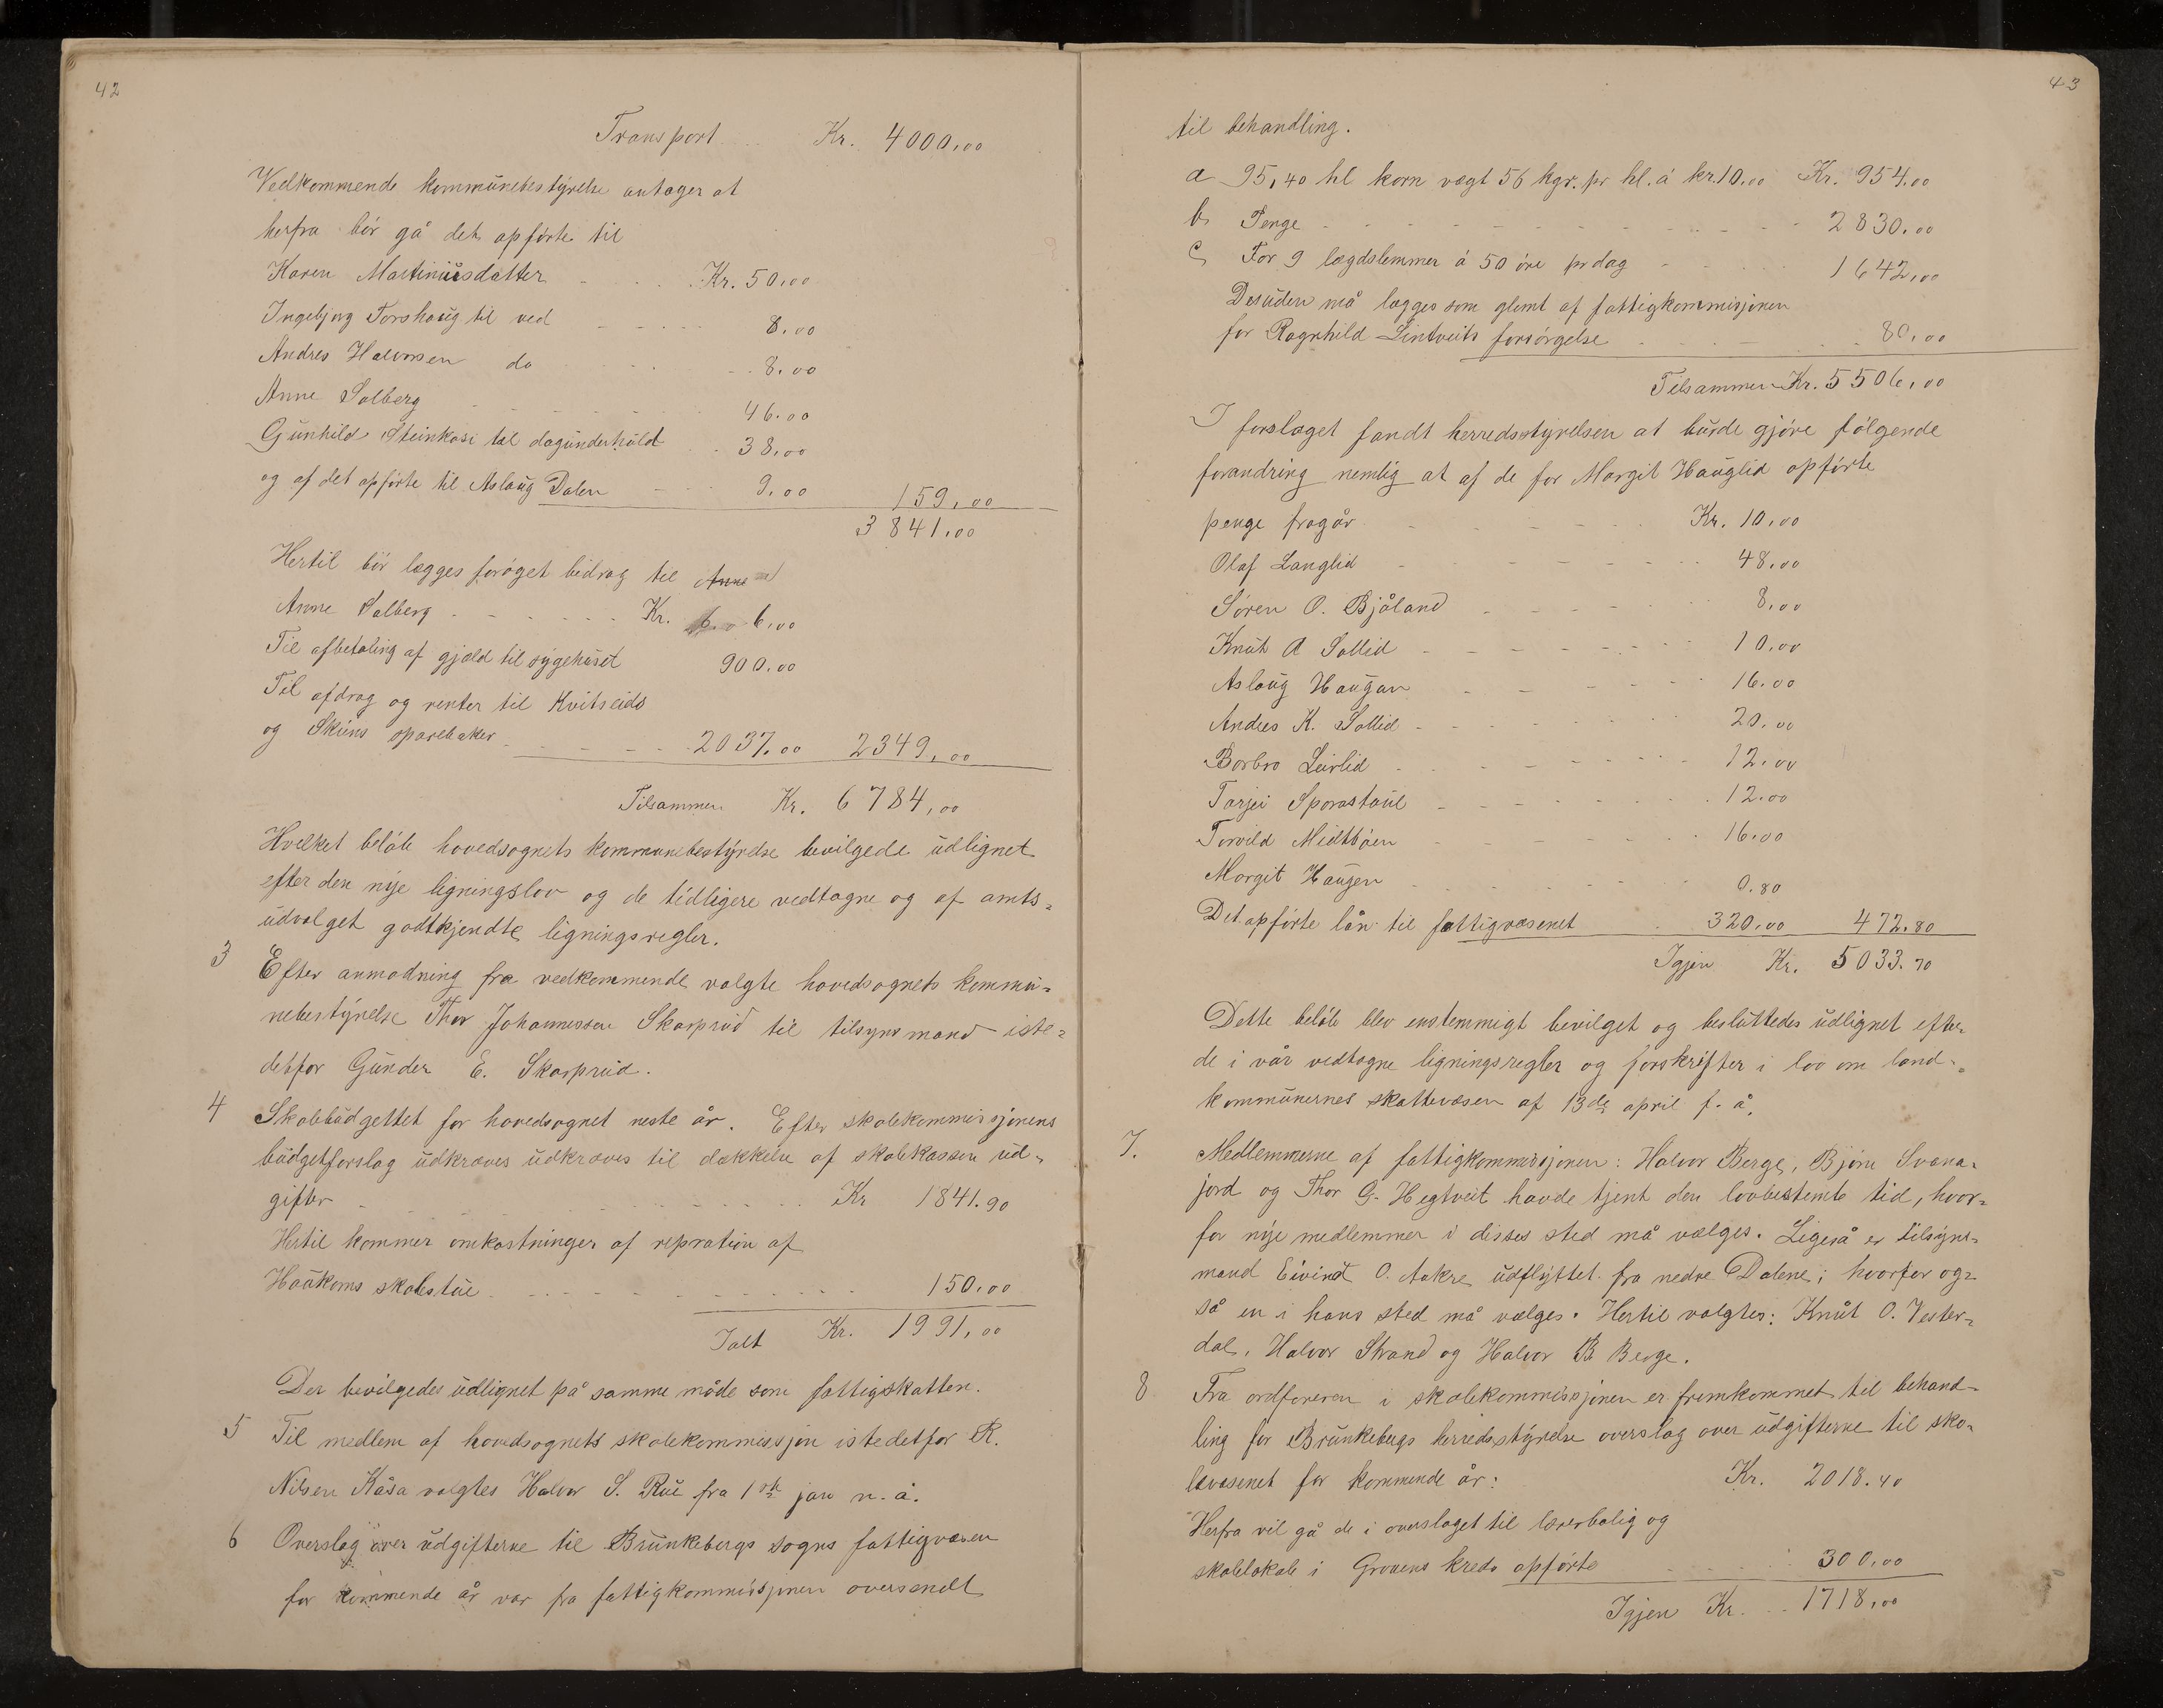 42
Transport Kr. 4000,00
Vedkommende kommunebestyrelse antager at
herfra bør gå det opførte til
Karen Martiniusdatter Kr. 50,00
Ingebjørg Torshaug til ved 8,00
Andres Halvorsen do 8,00
Anne Solberg 46,00
Gunhild Steinkasi til dagunderhold 38,00
og af det opførte til Aslaug Dalen 9,00 159,00
3841,00
Hertil bør lægges forøget bidrag til Anne
Anne Solberg Kr. 6,00
Til afbetaling af gjæld til sygehuset 900,00
Til afdrag og renter til Kvitseids
og Skiens sparebaker 2037,00 2349,00
Tilsammen Kr. 6784,00
Hvilket beløb hovedsognets kommunebestyrelse bevilgede udlignet
efter den nye ligningslov og de tidligere vedtagne og af amts=
udvalget godtkjendte ligningsregler.
3 Efter anmodning fra vedkommende valgte hovedsognets kommu=
nebestyrelse Thor Johannessen Skarprud til tilsynsmand iste=
detfor Gunder E. Skarprud.
4 Skolebudgettet for hovedsognet neste år. Efter skolekommissjonens
budgetforslag udkræves udkræves til dækkelse af skolekassen ud=
gifter Kr 1841.90
Hertil kommer omkostninger af repration af
Haukoms skolestue 150,00
Ialt Kr. 1991,00
Der bevilgedes udlignet på samme måde som fattigskatten.
5 Til medlem af hovedsognets skolekommissjon istedetfor R.
Nilsen Kåsa valgtes Halvor S. Rui fra 1ste jan n. å.
6 Overslag over udgifterne til Brunkebergs sogns fattigvæsen
for kommende år var fra fattigkommissjonen oversendt
43
til behandling.
a 95,40 hl korn vægt 56 kgr. pr hl. á kr. 10.00 Kr. 954,00
b Penge 2830,00
c For 9 lægdslemmer á 50 øre pr dag 1642,00
Desuden må lægges som glemt af fattigkommisjonen
for Ragnhild Lintveits forsørgelse 80,00
Tilsammen Kr. 5506,00
I forslaget fandt herredsstyrelsen at burde gjøre følgende
forandring nemlig at af de for Margit Hauglid opførte
penge fragår Kr. 10,00
Olaf Langlid 48,00
Søren O. Bjåland 8,00
Knut A Sollid 10,00
Aslaug Haugan 16,00
Andres K. Sollid 20,00
Borbro Leirlid 12,00
Tarjei Sporastøul 12.00
Torvild Midtbøen 16.00
Margit Haugen 0.80
Det opførte lån til fattigvæsenet 320,00 472.80
Igjen Kr. 5033.70
Dette beløb blev enstemmigt bevilget og besluttedes udlignet efter
de i vår vedtagne ligningsregler og forskrifter i lov om land=
kommunernes skattevæsen af 13de april f. å.
7. Medlemmerne af fattigkommissjonen: Halvor Berge, Bjørn Svana=
jord og Thor G. Hegtveit havde tjent den lovbestemte tid, hvor=
for nye medlemmer i disses sted må vælges. Ligeså er tilsyns=
mand Eivind O. Aakre udflyttet fra nedre Dalene; hvorfor og=
så en i hans sted må vælges. Hertil valgtes: Knut O. Vester=
dal, Halvor Strand og Halvor B. Berge.
8 Fra ordføreren i skolekommissjonen er fremkommet til behand=
ling for Brunkebergs herredsstyrelse overslag over udgifterne til sko=
levæsenet for kommende år: Kr. 2018.40
Herfra vil gå de i overslaget til lærerbolig og
skolelokale i Grovens kreds opførte 300,00
Igjen Kr. 1718,00